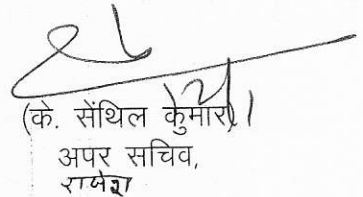 (के. सेंथिल कुमार)
अपर सचिव,
राजेश